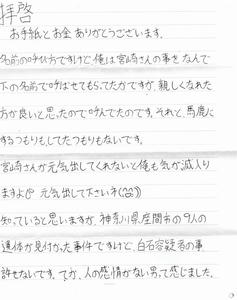 拝啓
お手紙とお金ありがとうございます。
名前の呼び方ですけど、俺は宮崎さんの事をなんで
下の名前で呼ばせてもらってたかですが、親しくなれた
方が良いと思ったので呼んでたのです。それと、馬鹿に
するつもりもしてたつもりもないです。
宮崎さんが元気出してくれないと俺も気が滅入り
ますよ 元気出して下さいネ
知っていると思いますが、神奈川県座間市の9人の
遺体が見付かった事件ですけど、白石容疑者の事
許せないです。てか、人の感情がない男って感じました。